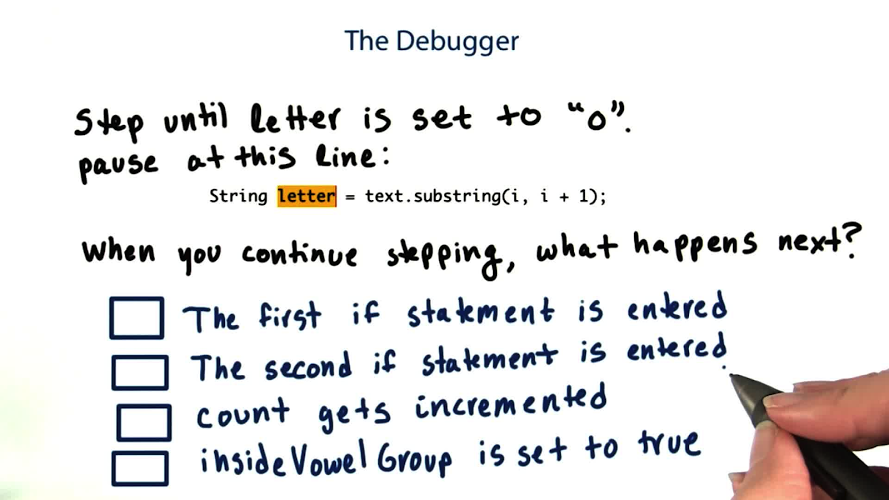 The Debugger
Step until letter is set to "o".
pause at this line:
String letter = text.substring(i, i + 1);
When you continue stepping, what happens next?
The first if statement is entered
The second if statement is entered
count gets incremented
insideVowelGroup is set to true